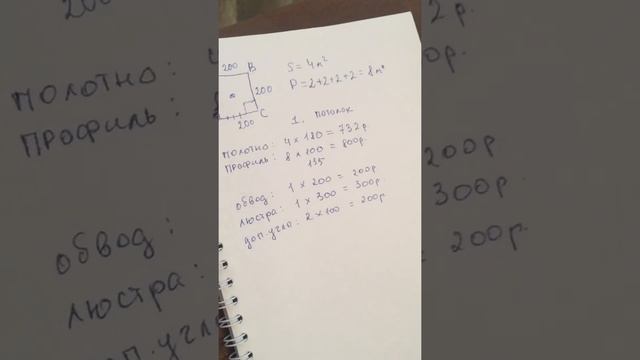 200 B
S = 4 м²
200
P = 2+2+2+2 = 8 м²
200 C
1. потолок
полотно: 4 × 180 = 732 р.
профиль: 8 × 100 = 800 р.
135
обвод: 1 × 200 = 200р.
люстра: 1 × 300 = 300р.
доп.угло: 2 × 100 = 200р.